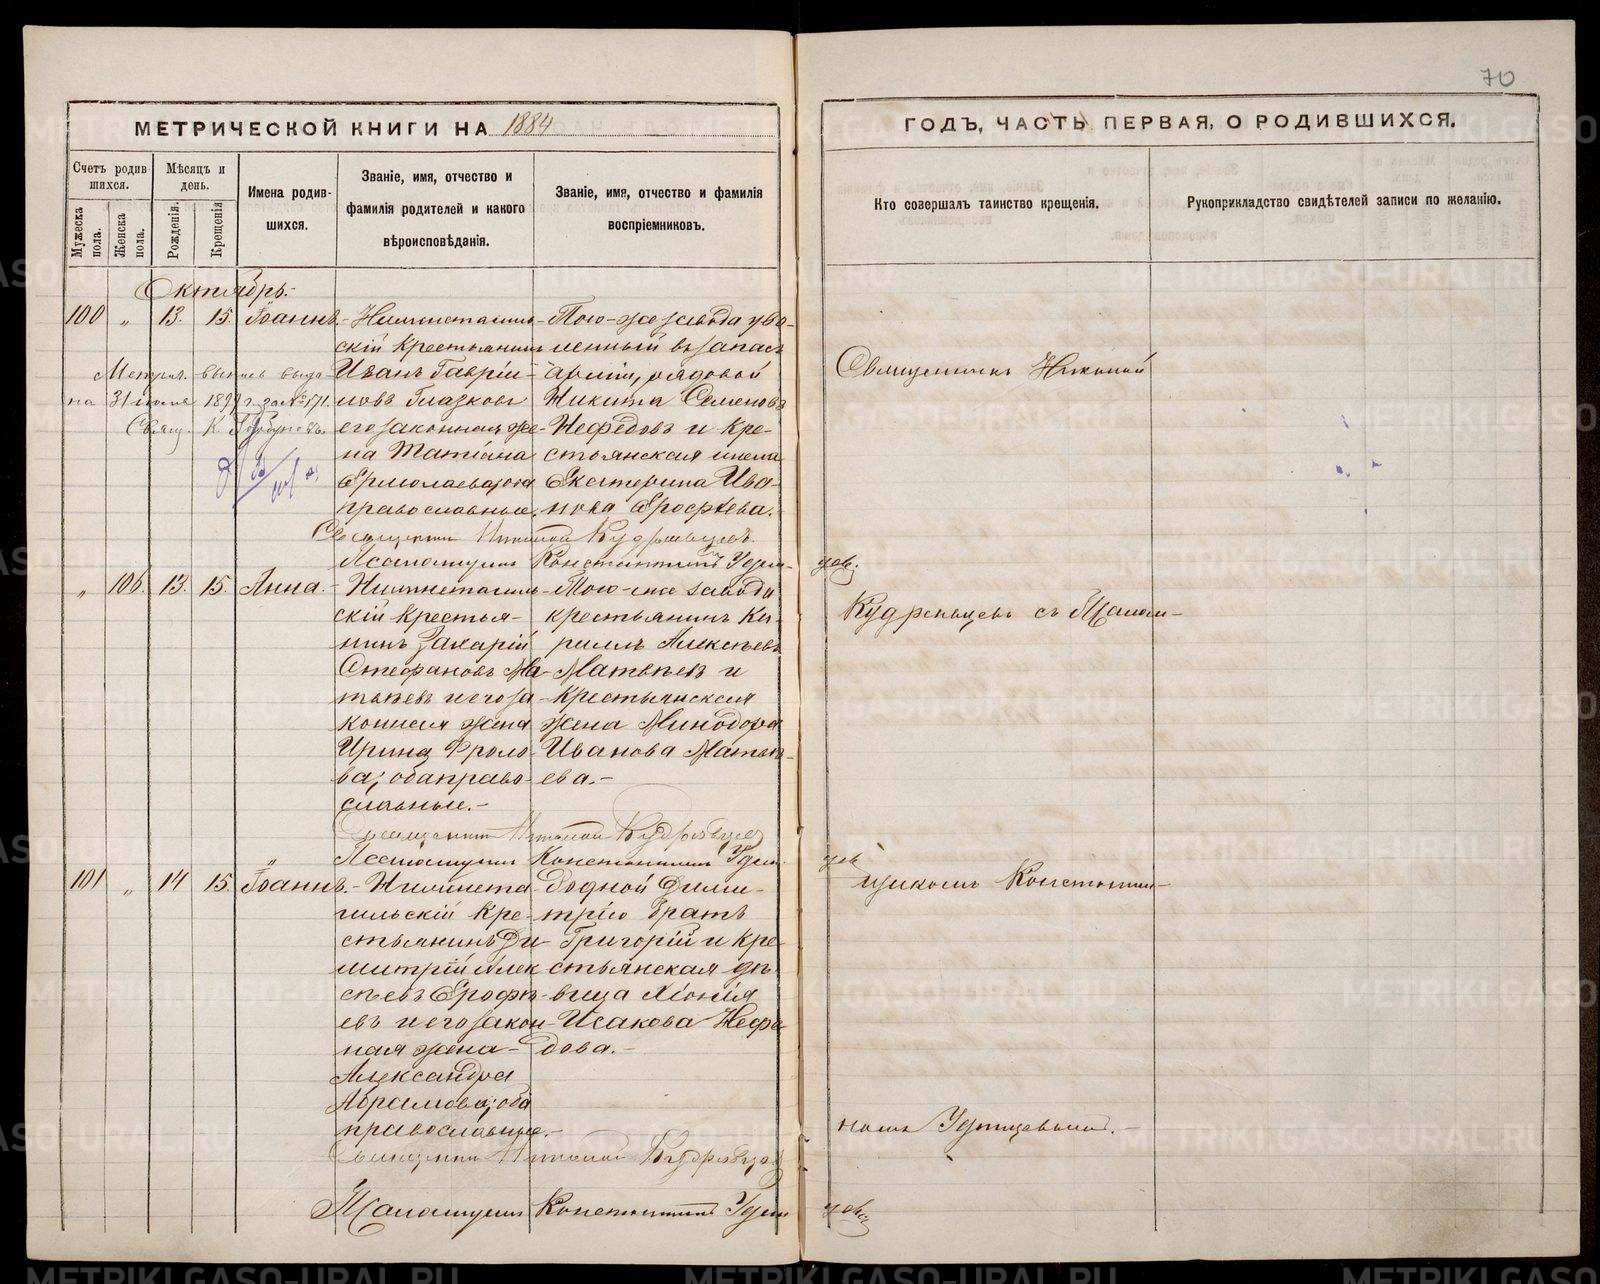 70
МЕТРИЧЕСКОЙ КНИГИ НА 1884
ГОДЪ, ЧАСТЬ ПЕРВАЯ, О РОДИВШИХСЯ.
Счетъ родив
шихся.
Мужеска
пола.
Женска
пола.
Мѣсяцъ и
день.
Рожденія.
Крещенія
Имена родив-
шихся.
Званіе, имя, отчество и
фамилія родителей и какого
вѣроисповѣданія.
Званіе, имя, отчество и фамилія
воспріемниковъ.
Кто совершалъ таинство крещенія.
Рукоприкладство свидѣтелей записи по желанію.
Октябрь.-
100 „ 13. 15. Іоаннъ.-
Метрич. выпись выда
на 31 1899 г. за № 171.
Свящ. К.
скій крестьянинъ
Иванъ Гаврии-
ловъ Глазковъ
его законная же-
на Татіана
Ермолаева; оба
православные.
Того-же завода уво-
ленный въ запасъ
арміи, рядовой
Никита Семеновъ
Нефедовъ и кре-
стьянская жена
Екатерина Ива-
нова Ерофеева.
Священникъ Николай Кудрявцевъ.
Псаломщикъ Константинъ Удин-
цев.
„ 106. 13. 15. Анна.-
скій крестья-
нинъ Захарій
Стефановъ Ма-
твѣевъ и его за-
конная жена
Ирина Фроло-
ва; оба право-
славные.-
Того-же завода
крестьянинъ Ки-
риллъ Алексѣевъ
Матвѣевъ и
крестьянская
жена Минодора
Иванова Матвѣ-
ева.-
Священникъ Николай Кудрявцев
Псаломщикъ Константинъ Удин-
цев
101 „ 14 15. Іоаннъ.-
Нижнета-
гильскій кре-
стьянинъ Ди-
митрій Алек
сѣевъ Ерофѣ-
евъ и его закон-
ная жена-
Александра
Абрамова; оба
православные.-
Родной Дими-
трію братъ
Григорій и кре-
стьянская дѣ-
вица Хіонія
Исакова Нефе
дова.-
Священникъ Николай Кудрявцевъ
Псаломщикъ Константинъ Удин
цевъ
Священникъ Николай
Кудрявцевъ съ Псалом-
щикомъ Константи-
номъ Удинцевымъ.-
METRIKI.GASO-URAL.RU